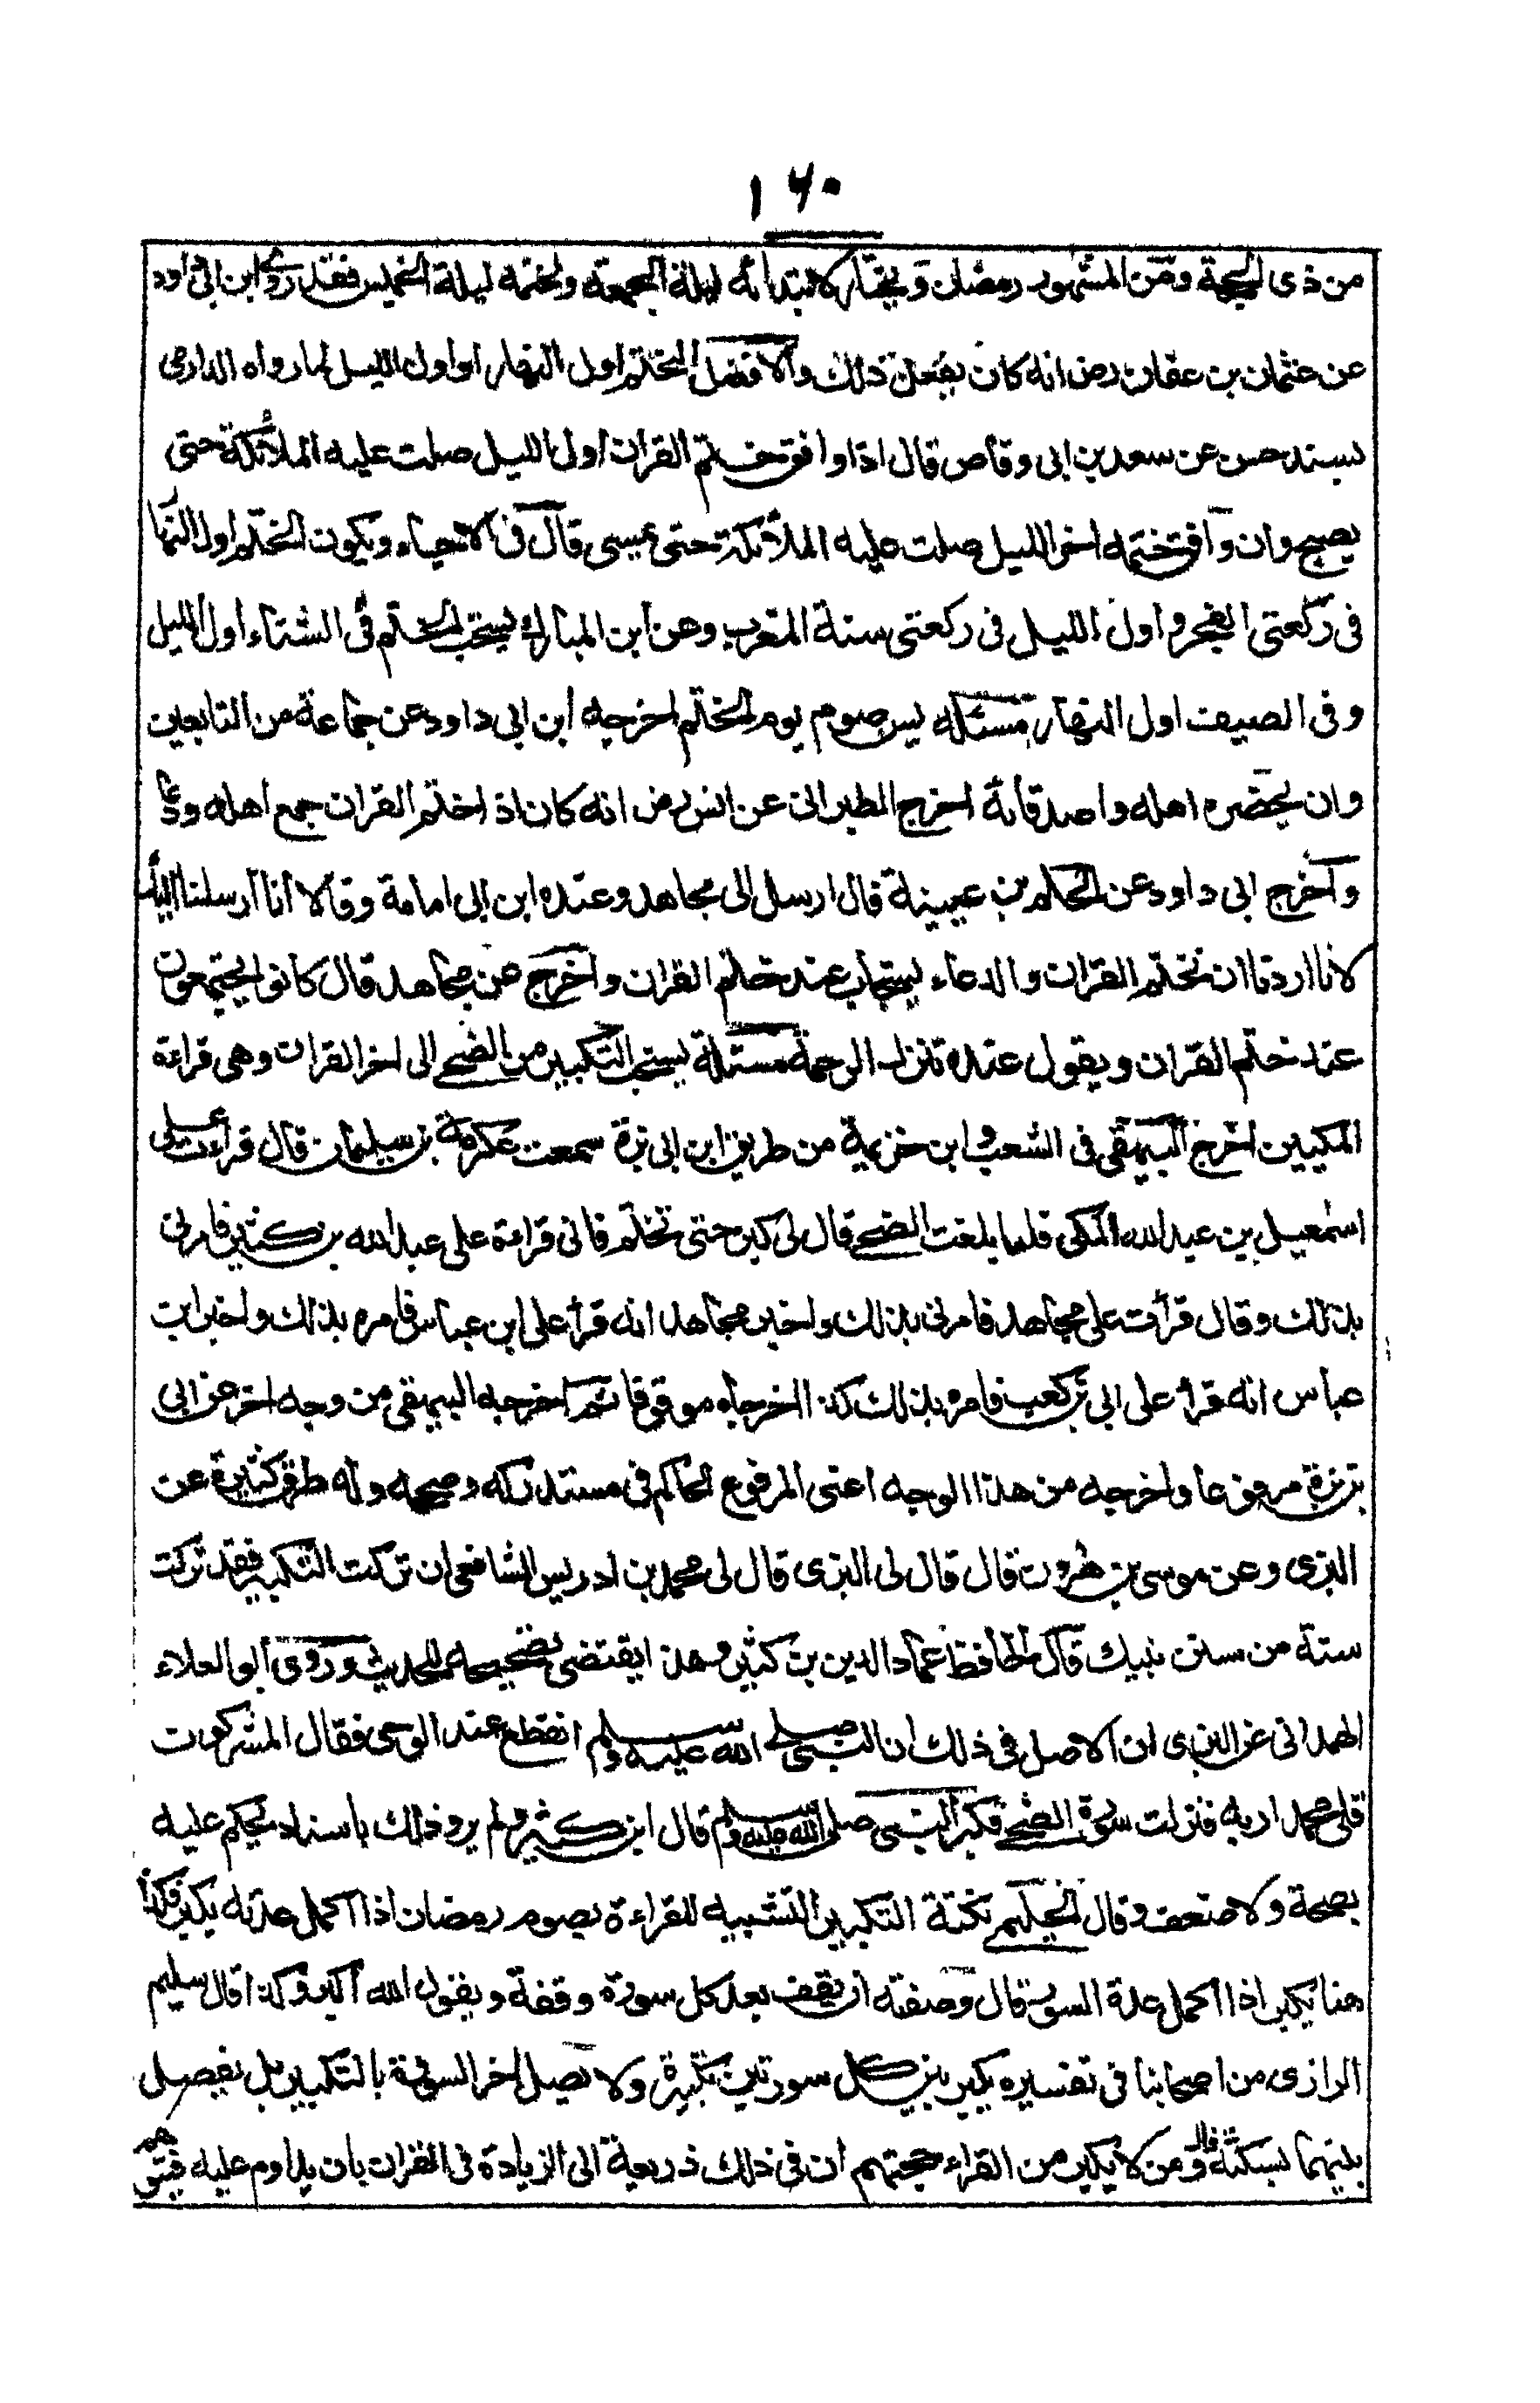 ١٦٠
من ذى الحجة ومن المشهور رمضان ويختار لابتدائه ليلة الجمعة ولختمه ليلة الخميس فقد روى ابن ابى داود
عن عثمان بن عفان رض انه كان يفعل ذلك والافضل الختم اول النهار او اول الليل لما رواه الدارمى
بسند حسن عن سعد بن ابى وقاص قال اذا وافق ختم القران اول الليل صلت عليه الملائكة حتى
يصبح وان وافق ختمه اخر الليل صلت عليه الملائكة حتى يمسى قال فى الاحياء ويكون الختم اول النهار
فى ركعتى الفجر و اول الليل فى ركعتى سنة المغرب وعن ابن المبارك يستحب الختم فى الشتاء اول الليل
وفى الصيف اول النهار مسئله يسن صوم يوم الختم اخرجه ابن ابى داود عن جماعة من التابعين
وان يحضره اهله واصدقائه اخرج الطبرانى عن انس رض انه كان اذا ختم القران جمع اهله ودعا
واخرج ابى داود عن الحكم بن عيينة قال ارسل الى مجاهد وعنده ابن ابى امامة وقالا انا ارسلنا اليك
لانا اردنا ان نختم القران والدعاء يستجاب عند ختم القران واخرج عن مجاهد قال كانوا يجتمعون
عند ختم القران ويقول عنده تنزل الرحمة مسئلة يستحب التكبير من الضحى الى اخر القران وهى قراءة
المكيين اخرج البيهقى فى الشعب و ابن خزيمة من طريق ابن ابى بزة سمعت عكرمة بن سليمان قال قراءت على
اسمعيل بن عبد الله المكى فلما بلغت الضحى قال لى كبر حتى تختم فانى قراءة على عبد الله بن كثير فامرنى
بذلك وقال قرأت على مجاهد فامرنى بذلك واخبر مجاهد انه قرأ على ابن عباس فامره بذلك واخبر ابن
عباس انه قرأ على ابى بن كعب فامره بذلك كذا اخرجاه موقوفا ثم اخرجه البيهقى من وجه اخر عن ابى
بزة مرفوعا واخرجه من هذا الوجه اعنى المرفوع الحاكم فى مستدركه وصححه وله طرق كثيرة عن
البزى وعن موسى بن هرون قال قال لى البزى قال لى محمد بن ادريس الشافعى ان تركت التكبير فقد تركت
سنة من سنن نبيك قال الحافظ عماد الدين بن كثير وهذا يقتضى تصحيحه للحديث وروى ابو العلاء
الهمدانى عن البزى ان الاصل فى ذلك ان النبى صلى الله عليه وسلم انقطع عنه الوحى فقال المشركون
قلى محمدا ربه فنزلت سورة الضحى فكبر النبى صلى الله عليه وسلم قال ابن كثير ولم يرو ذلك باسناد يحكم عليه
بصحة ولا ضعف وقال الحليمى نكتة التكبير التشبيه للقراءة بصوم رمضان اذا اكمل عدته يكبر فكذا
هنا يكبر اذا اكمل عدة السور قال وصفته ان يقف بعد كل سورة وقفة ويقول الله اكبر وكذا قال سليم
الرازى من اصحابنا فى تفسيره يكبر بين كل سورتين تكبيرة ولا تصل اخر السورة بالتكبير بل يفصل
بينهما بسكتة قال ومن لا يكبر من القراء حجتهم ان فى ذلك ذريعة الى الزيادة فى القران بان يداوم عليه فيتوهم